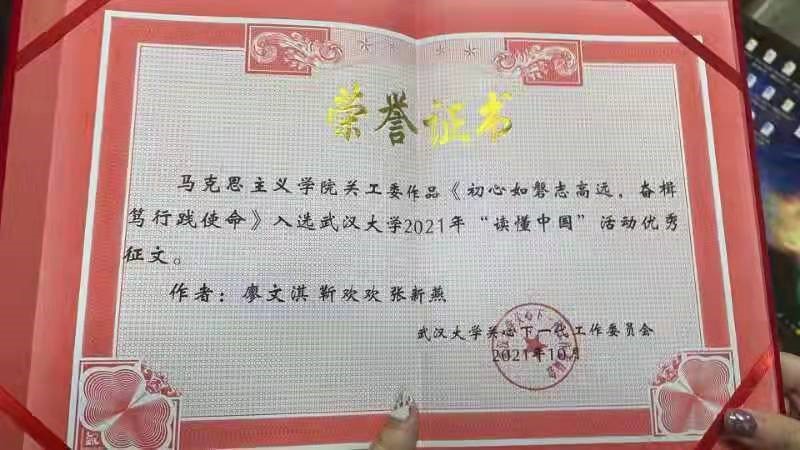 荣誉证书
马克思主义学院关工委作品《初心如磐志高远，奋楫
笃行践使命》入选武汉大学2021年“读懂中国”活动优秀
征文。
作者：廖文淇 靳欢欢 张新燕
武汉大学关心下一代工作委员会
2021年10月